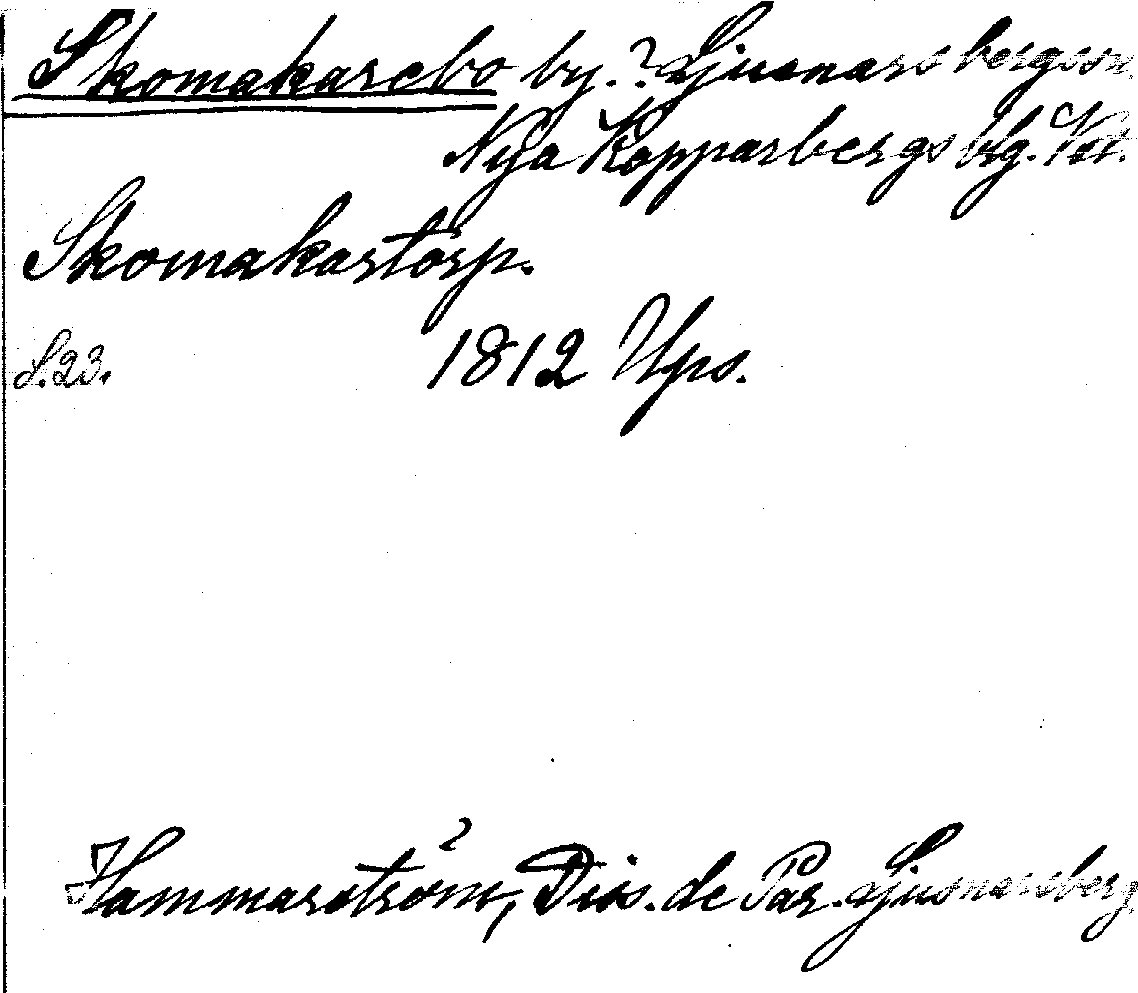 Skomakarebo by.? Ljusnarsbergssn
Nya Kopparbergs blg. Vst.
Skomakartorp.
S.23. 1812 Ups.
Hammarström, Dis. de Par. Ljusnarsberg